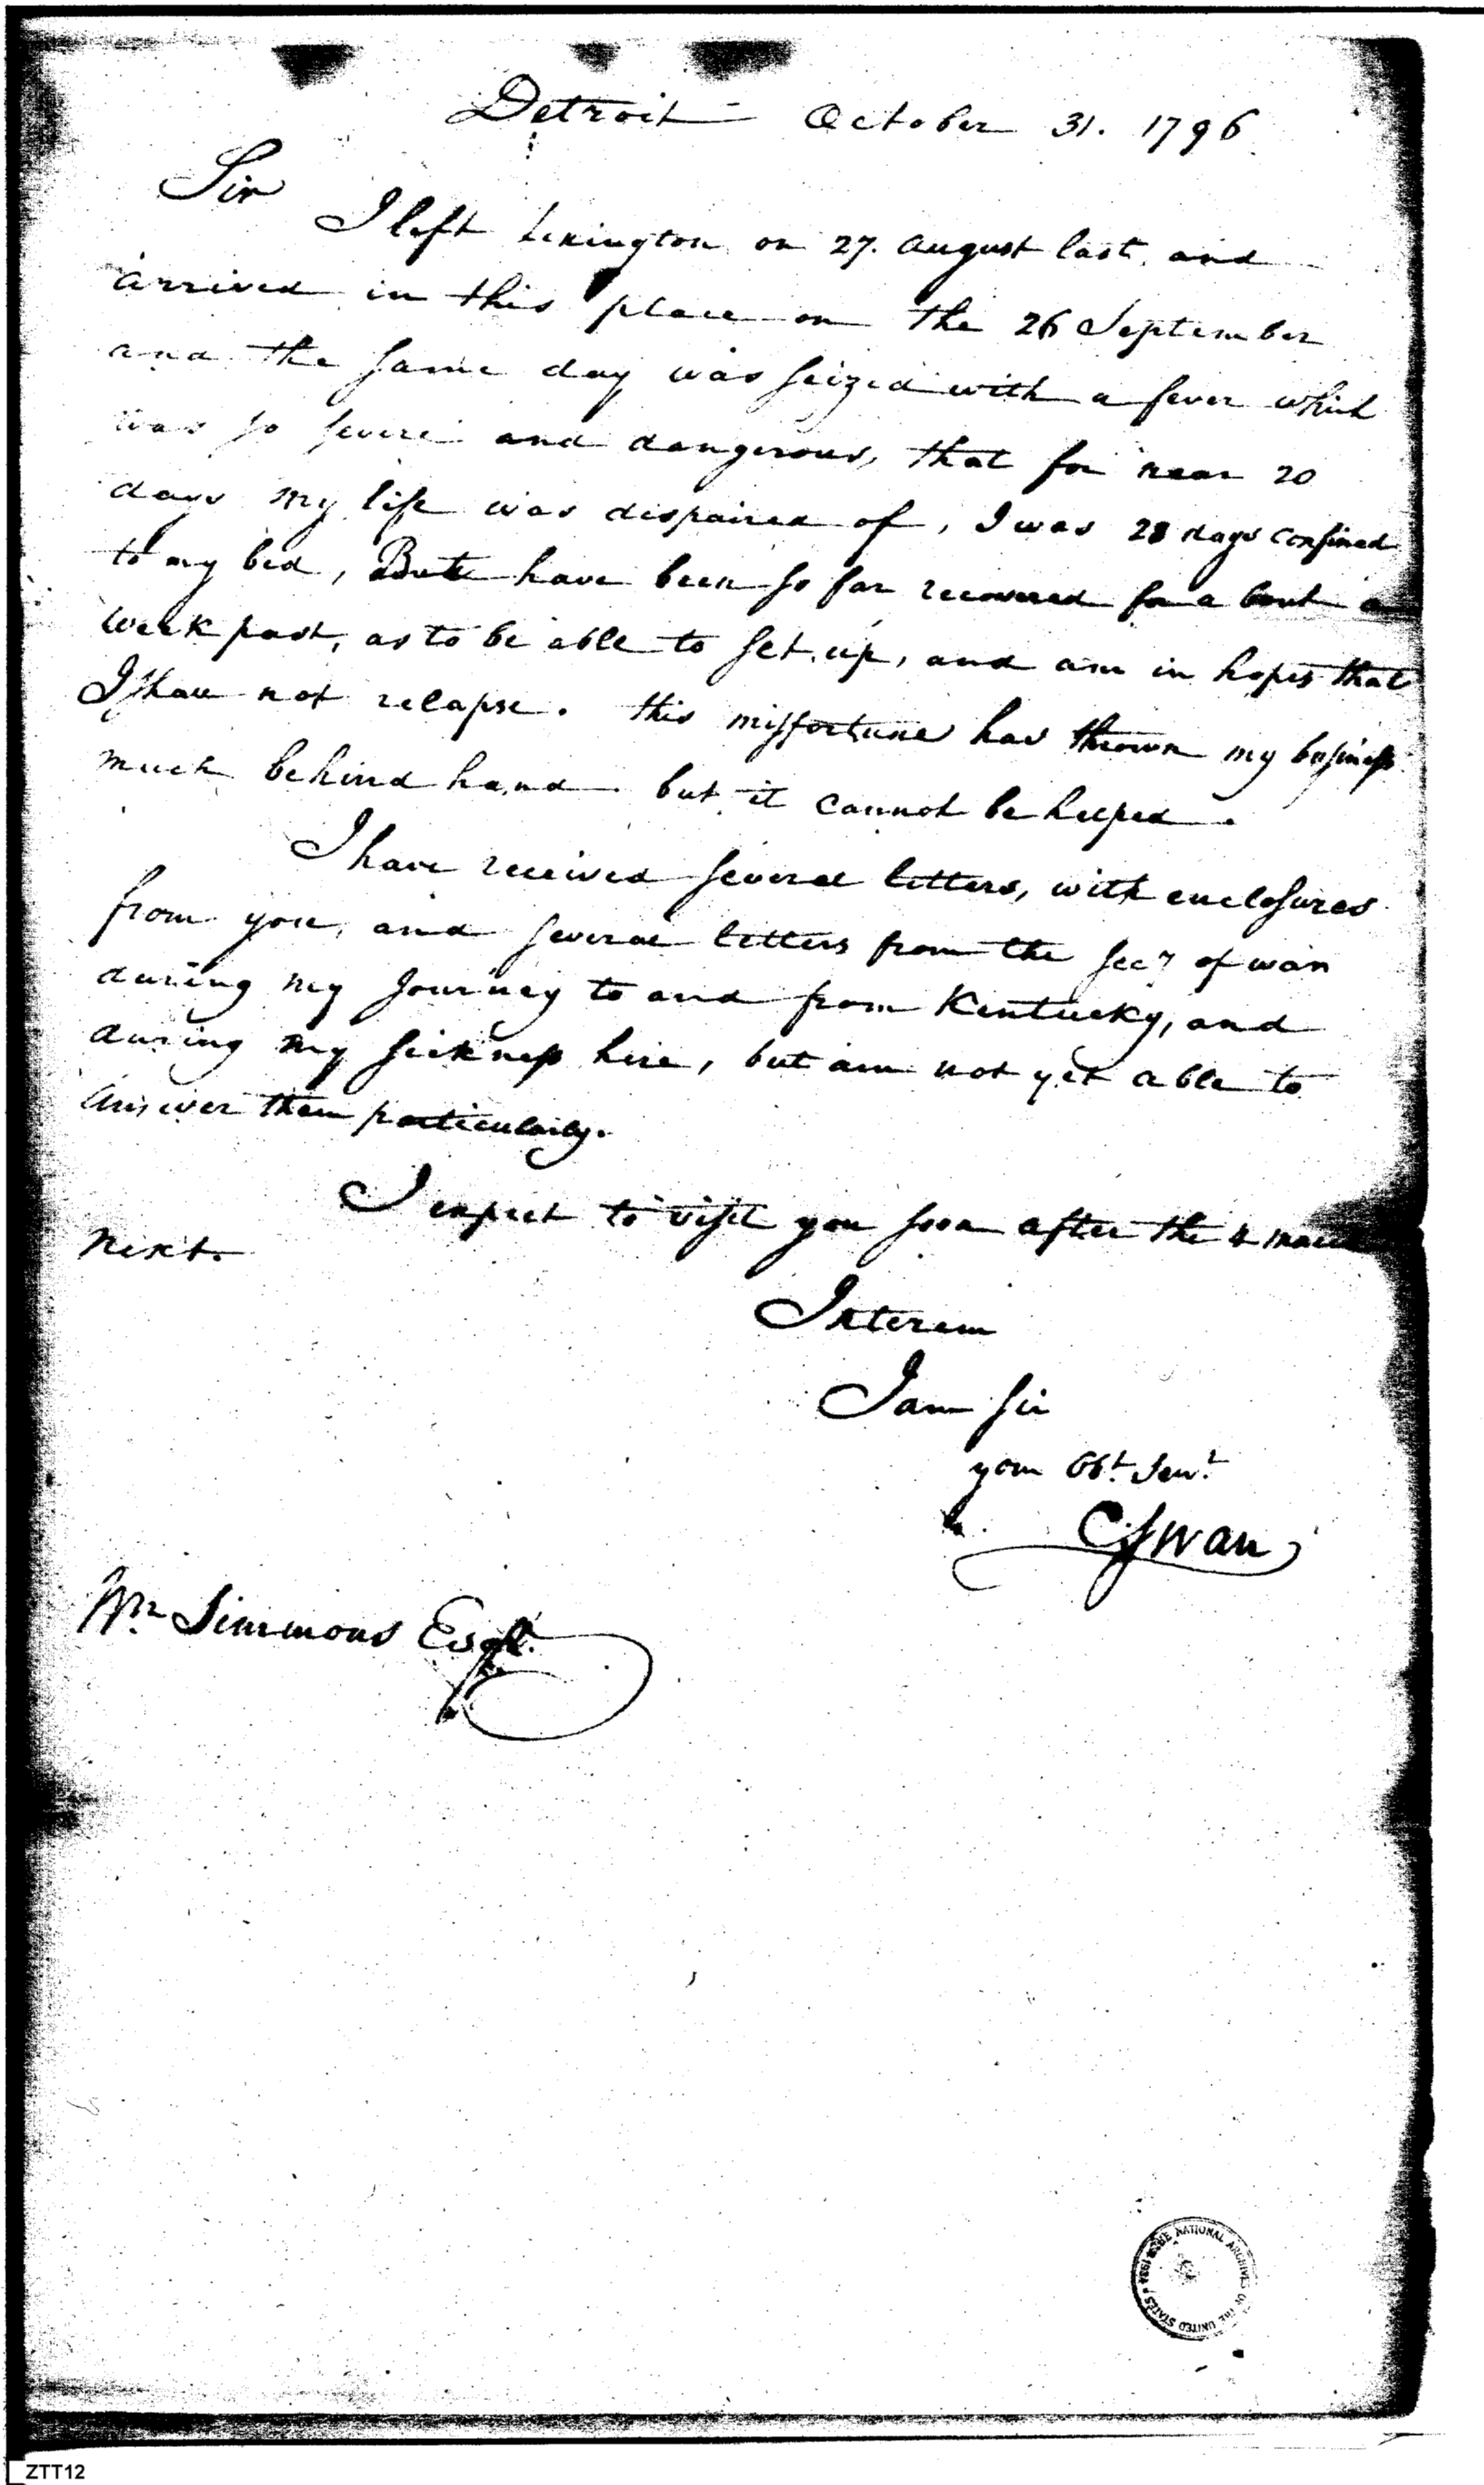 Detroit - October 31. 1796
Sir
I left Lexington on 27. August last, and
arrived in this place on the 26 September
and the same day was seized with a fever which
was so severe and dangerous, that for near 20
days my life was dispaired of, I was 28 days confined
to my bed, But have been so far recovered for a bout a
week past, as to be able to set up, and am in hopes that
I shall not relapse. this missfortune has thrown my business
much behind hand. but it cannot be helped.
I have received several letters, with enclosures
from you, and several letters from the Secy of war
during my Journey to and from Kentucky, and
during my sickness here, but am not yet able to
answer them particularly.
I expect to visit you soon after the 4 march
next.
Interim
I am Sir
your Obt. Servt
C Swan
Wm Simmons Esqr.
THE NATIONAL ARCHIVES OF THE UNITED STATES 1934
ZTT12